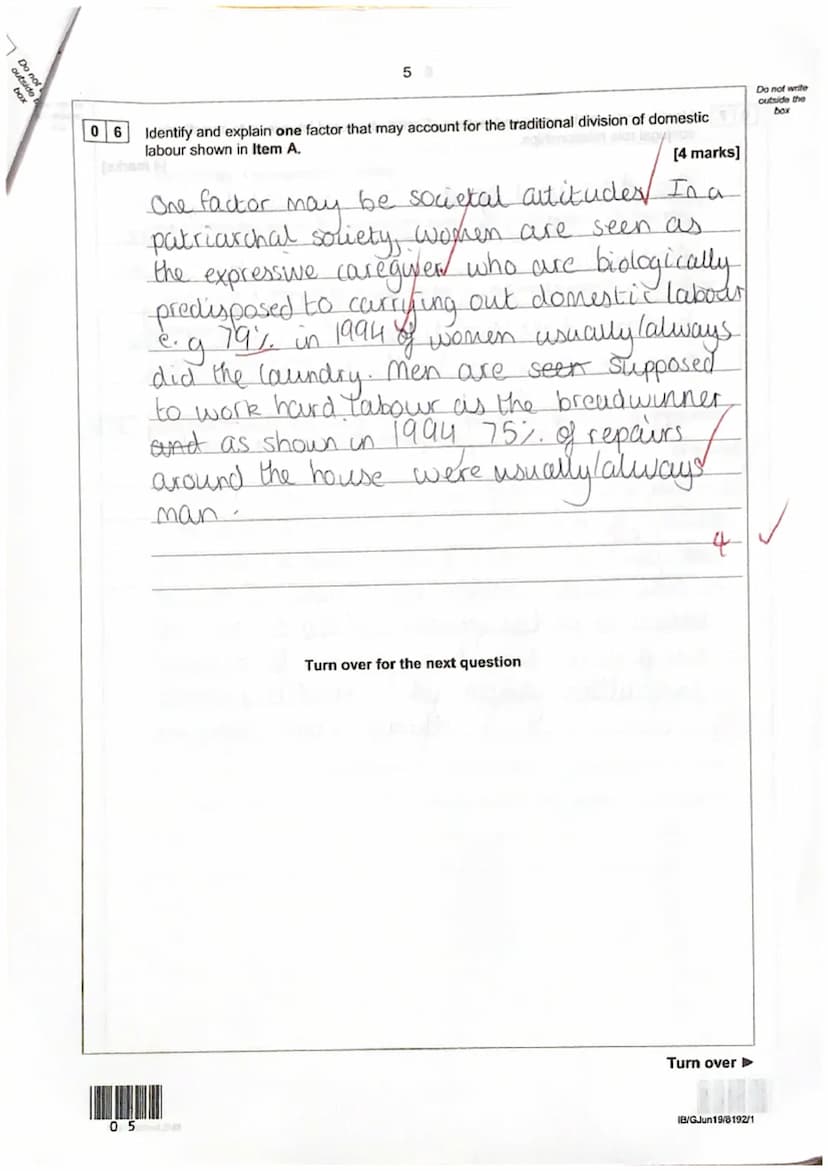 Do not
outside t
box
5
Do not write
outside the
box
0 6 Identify and explain one factor that may account for the traditional division of domestic
labour shown in Item A.
[4 marks]
One factor may be societal attitudes. In a
patriarchal society, women are seen as
the expressive caregiver who are biologically
predisposed to carrying out domestic labour
e.g 79% in 1994 of women usually/always
did the laundry. Men are seen supposed
to work hard labour as the breadwinner
and as shown in 1994 75% of repairs
around the house were usually/always
man.
4
Turn over for the next question
Turn over
0 5
IB/GJun19/8192/1